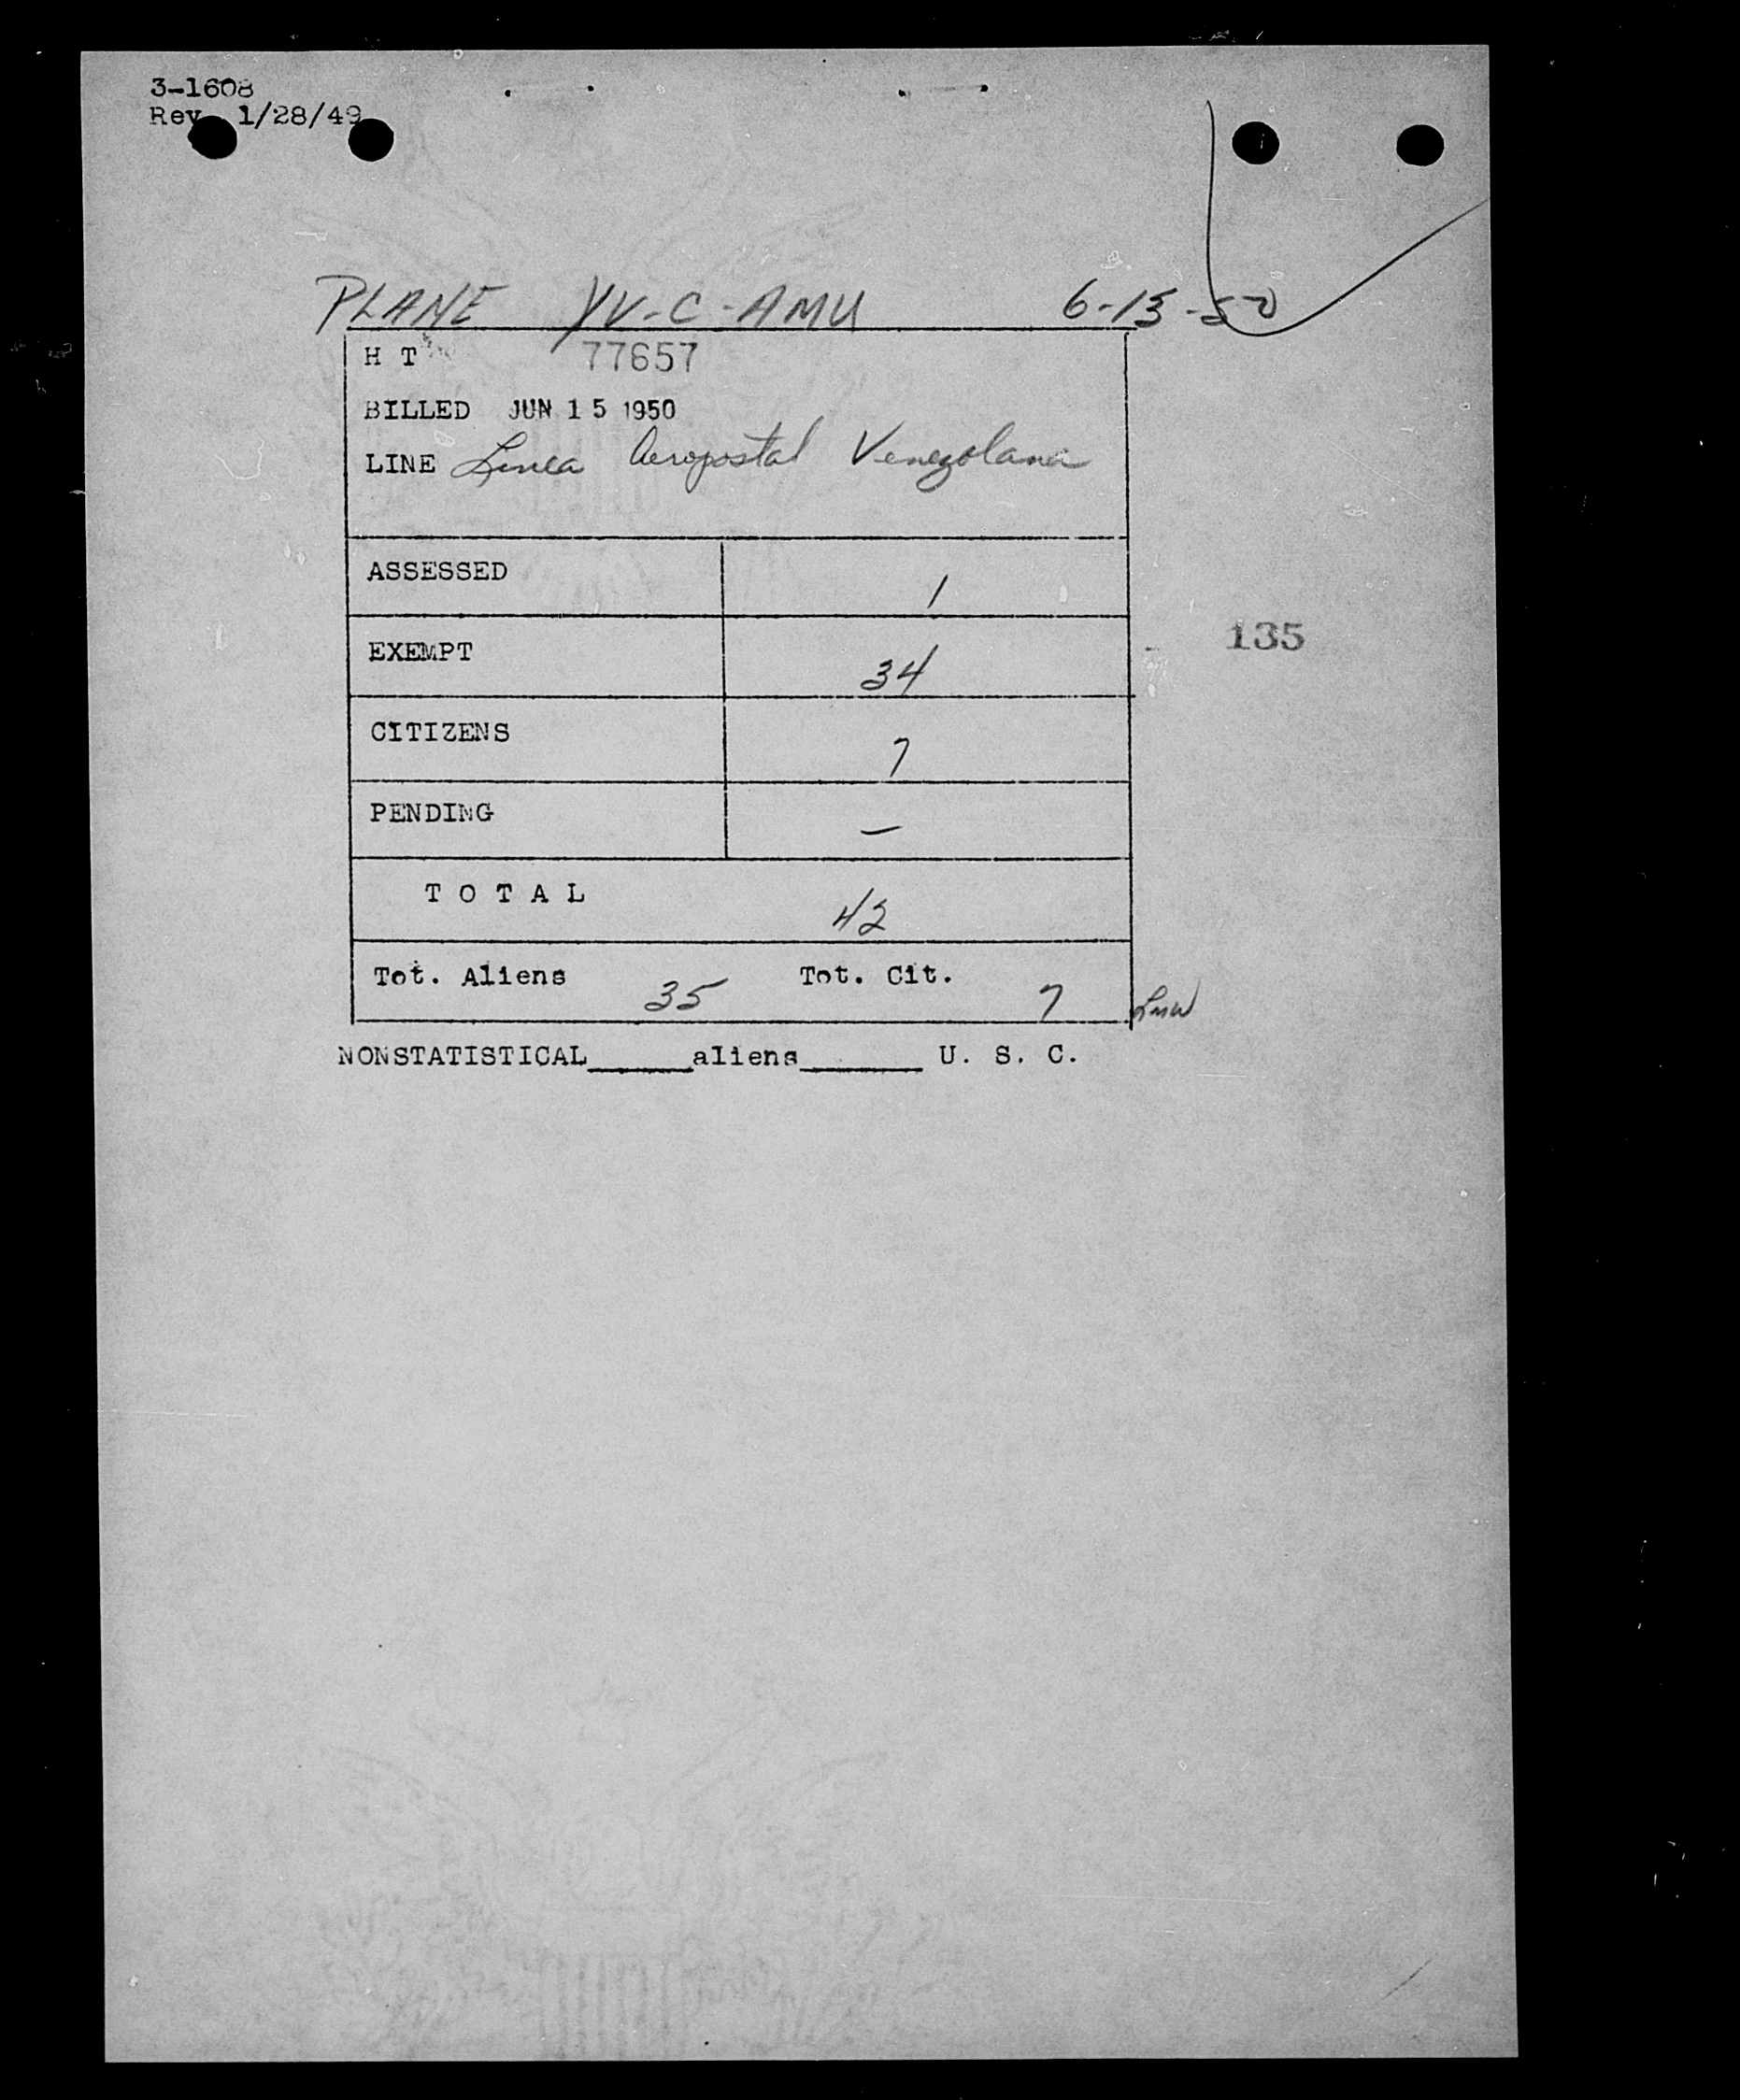 3-1608
Rev. 1/28/49
PLANE YV-C-AMU 6-13-50
H T 77657
BILLED JUN 15 1950
LINE Linea Aeropostal Venezolana
ASSESSED 1
EXEMPT 34
135
CITIZENS 7
PENDING —
T O T A L 42
Tot. Aliens 35 Tot. Cit. 7
NONSTATISTICAL______aliens_______ U. S. C.